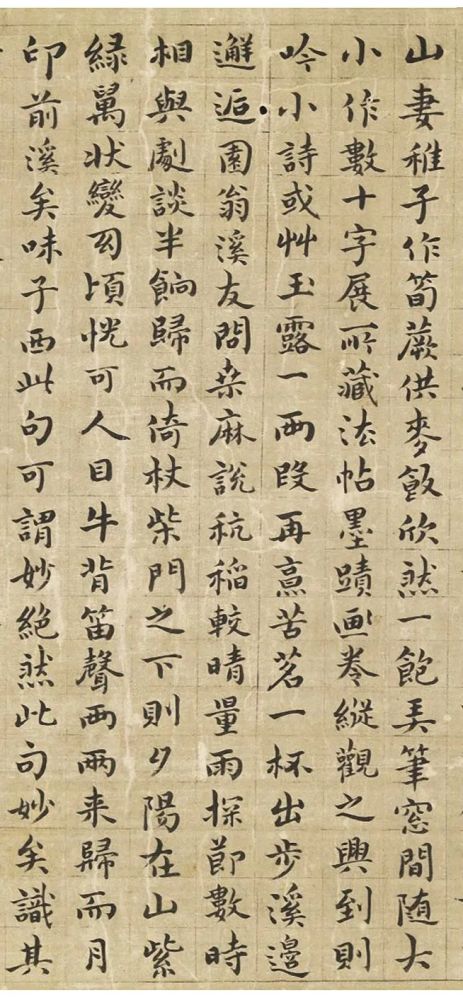 山妻稚子作筍蕨供麥飯欣然一飽弄筆窓間随大
小作數十字展所藏法帖墨蹟画卷縱觀之興到則
吟小詩或艸玉露一兩段再烹苦茗一杯出步溪邊
邂逅園翁溪友問桒麻說秔稲較晴量雨探節數時
相與劇談半餉歸而倚杖柴門之下則夕陽在山紫
緑萬状變幻頃恍可人目牛背笛聲两两来歸而月
印前溪矣味子西此句可謂妙絶然此句妙矣識其